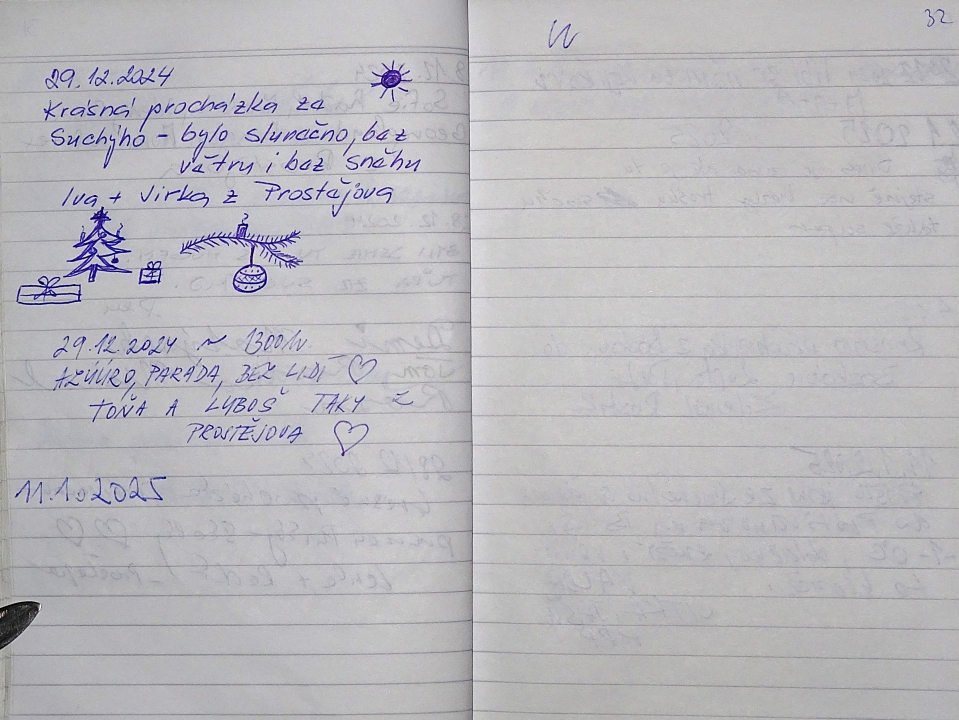 29.12.2024
Krásná procházka za
Suchýho – bylo slunečno, bez
větru i bez sněhu
Iva + Virka z Prostějova
29.12.2024 ~ 1300hv.
AZÚÚRO, PARÁDA, BEZ LIDÍ ♡
TOŇA A LUBOŠ TAKY Z
PROSTĚJOVA ♡
11.1.2025
32